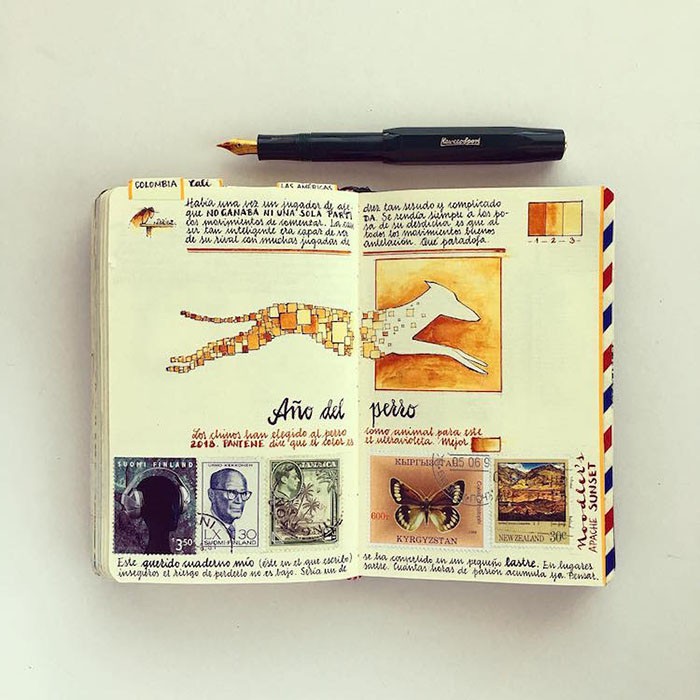 KawecoSport
COLOMBIA Cali
LAS AMÉRICAS
Había una vez un jugador de aje- drez tan sesudo y complicado
que NO GANABA NI UNA SOLA PARTI DA. Se rendía siempre a los po-
cos movimientos de comenzar. La cau sa de su desdicha es que al
ser tan inteligente era capaz de ver todos los movimientos buenos
de su rival con muchas jugadas de antelación. Qué paradoja.
-1-2-3-
Año del perro
Los chinos han elegido al perro como animal para este
2018. PANTENE dice que el color es el ultravioleta. Mejor
SUOMI FINLAND
3.50
URHO KEKKONEN
30
SUOMI-FINLAND
JAMAICA
КЫРГЫЗСТАН
600т
KYRGYZSTAN
05 06 9
NEW ZEALAND 30c
Noodler's
APACHE SUNSET
Este querido cuaderno mío (éste en el que escribo) se ha convertido en un pequeño lastre. En lugares
inseguros el riesgo de perderlo no es bajo. Sería un de sastre. Cuántas horas de pasión acumula ya. Pensar.